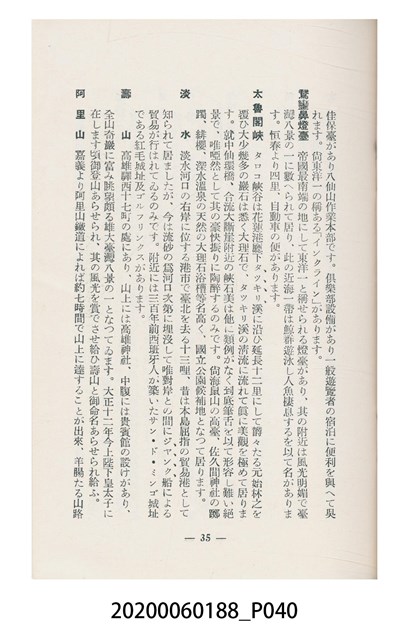 佳保臺があり八仙山作業本部です。俱樂部設備があり一般遊覽者の宿泊に便利を與へて吳
れます。尙東洋一の稱ある「インクライン」があります。
鵞鑾鼻燈臺　帝國最南端の地にして東洋一と稱せられる燈臺があり、其の附近は風光明媚で臺
灣八景の一に數へられて居り、此の近海一帶は鯨群遊泳し人魚棲息するを以て名がありま
す。恒春より四里、自動車の便があります。
太魯閣峽　タロコ峽谷は花蓮港廳下タツキリ溪に沿ひ延長十二里にして爵々たる元始林之を
覆ひ大少幾多の巖石は悉く大理石で、タツキリ溪の淸流に流れて眞に美觀を極めて居りま
す。就中仙環橋、合流大斷崖附近の峽石美は他に類例がなく到底筆舌を以て形容し難い絕
景で、唯啞然として其の豪快振りに陶醉するのみです。尙海鼠山の高臺、佐久間神社の躑
躅、緋櫻、深水溫泉の天然の大理石浴槽等名高く、國立公園候補地となつて居ります。
淡　水　淡水河口の右岸に位する港市で臺北を去る十三哩、昔は本島屈指の貿易港として
知られて居ましたが、今は流砂の爲河口次第に埋沒して唯對岸との間にジヤンク船による
貿易が行はれてゐるのみです。附近には三百年前西班牙人が築いたサン・ド・ミンゴ城址
である紅毛城址及ゴルフリンクスがあります。
壽　山　高雄驛西十七町の處にあり、山上には高雄神社、中腹には貴賓館の設けがあり、
全山奇巖に富み眺望頗る雄大臺灣八景の一となつてゐます。大正十二年今上陛下皇太子に
在します頃御登山あらせられ、其の風光を賞でさせ給ひ壽山と御命名あらせられ給ふ。
阿里山　嘉義より阿里山鐵道によれば約七時間で山上に達することが出來、羊腸たる山路
— 35 —
20200060188_P040